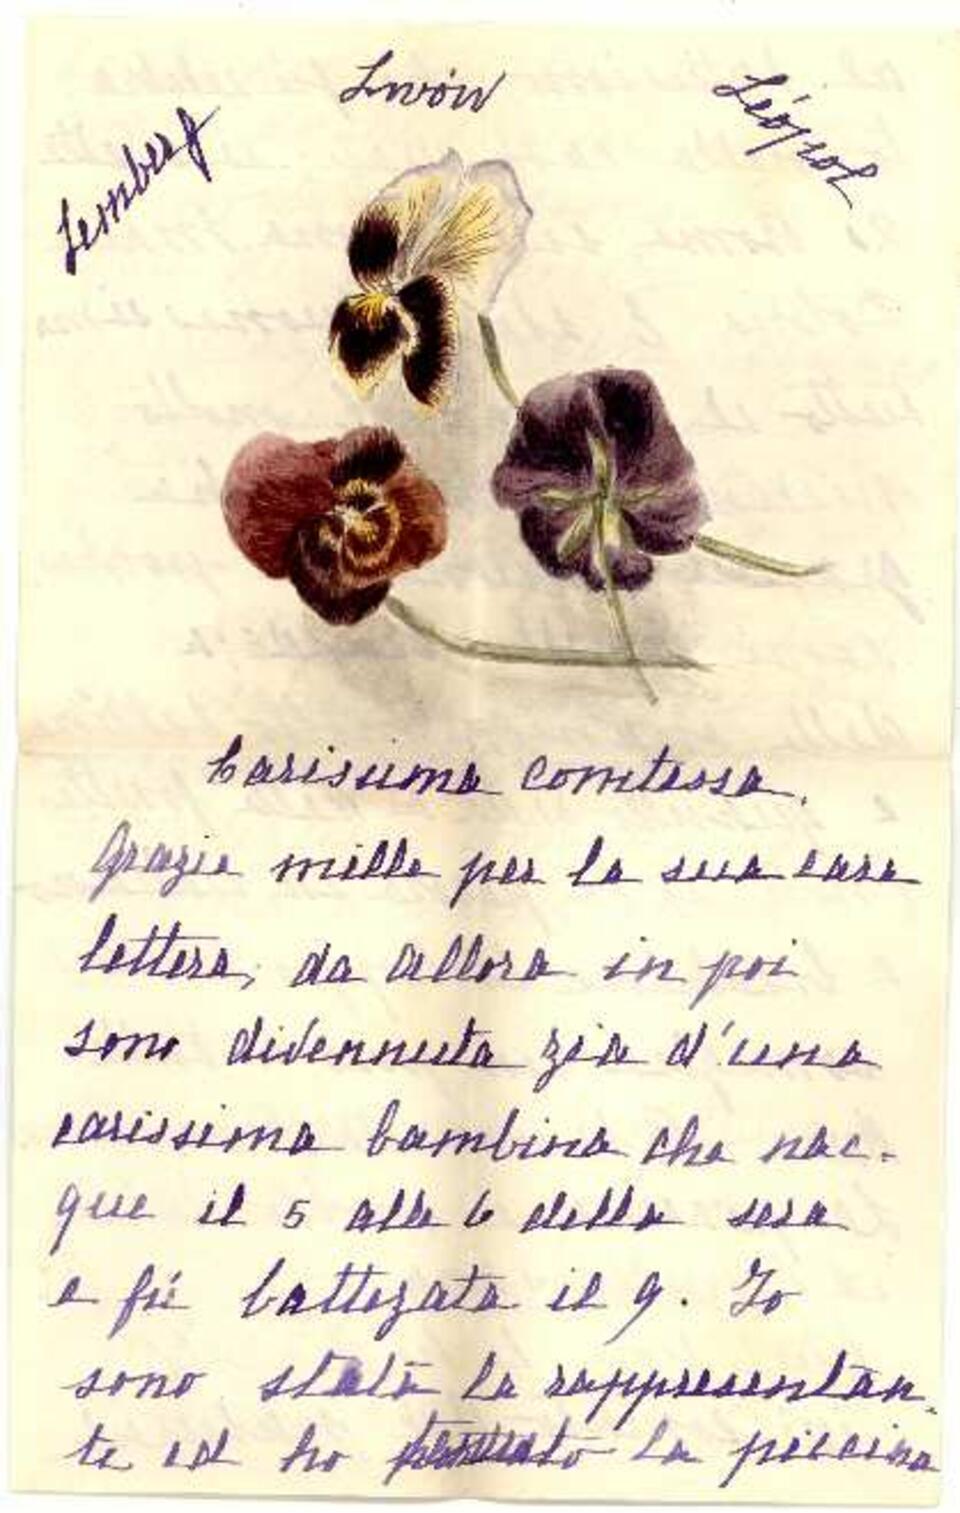 Lemberg
Lwów
Léopol
Carissima comtessa.
Grazie mille per la sua cara
lettera, da allora in poi
sono divennuta zia d'una
carissima bambina che nac-
que il 5 alle 6 della sera
e fú battezata il 9. Io
sono stata la rappresentan-
te ed ho la piccina